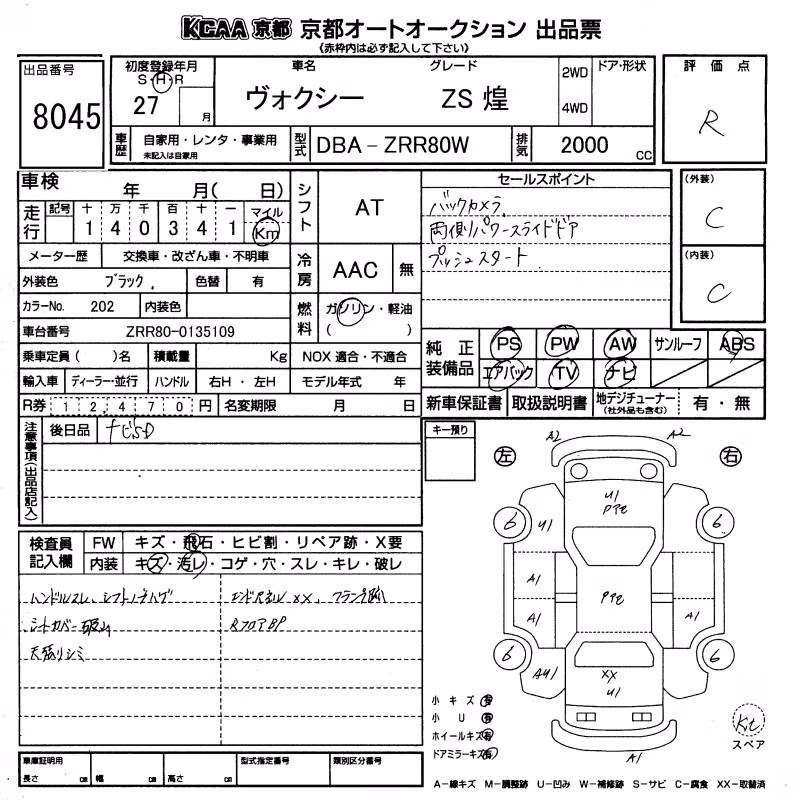 KCAA 京都 京都オートオークション 出品票
《赤枠内は必ず記入して下さい》
出品番号
8045
初度登録年月
S・H・R
27
月
車名
ヴォクシー
グレード
ZS 煌
2WD
4WD
ドア・形状
評価点
R
車歴
自家用・レンタ・事業用
未記入は自家用
型式
DBA-ZRR80W
排気
2000
CC
車検
年 月( 日)
走行
記号
十 万 千 百 十 一
1 4 0 3 4 1
マイル
Km
シフト
AT
セールスポイント
バックカメラ
両側パワースライドドア
プッシュスタート
(外装)
C
(内装)
C
メーター歴
交換車・改ざん車・不明車
冷房
AAC
無
外装色
ブラック
色替
有
カラーNo.
202
内装色
燃料
ガソリン・軽油
( )
車台番号
ZRR80-0135109
純正装備品
PS
PW
AW
サンルーフ
ABS
エアバック
TV
ナビ
乗車定員( )名
積載量
Kg
NOX 適合・不適合
輸入車
ディーラー・並行
ハンドル
右H・左H
モデル年式 年
新車保証書
取扱説明書
地デジチューナー
(社外品も含む)
有・無
R券
12,470円
名変期限
月 日
注意事項(出品店記入)
後日品
ナビSD
キー預り
検査員記入欄
FW
キズ・飛石・ヒビ割・リペア跡・X要
内装
キズ・汚レ・コゲ・穴・スレ・キレ・破レ
ハンドルスレ、シフトノブハゲ
シートカバー破れ
天張りシミ
RフロアBP
左
右
A2
A2
U1
6
6
U1
A1
A1
A1
6
6
AU1
XX
U1
A1
小キズ 有
小U 有
ホイールキズ 有
ドアミラーキズ 有
スペア
A-線キズ M-調整跡 U-凹み W-補修跡 S-サビ C-腐食 XX-取替済
車庫証明用
長さ cm
幅 cm
高さ cm
型式指定番号
類別区分番号